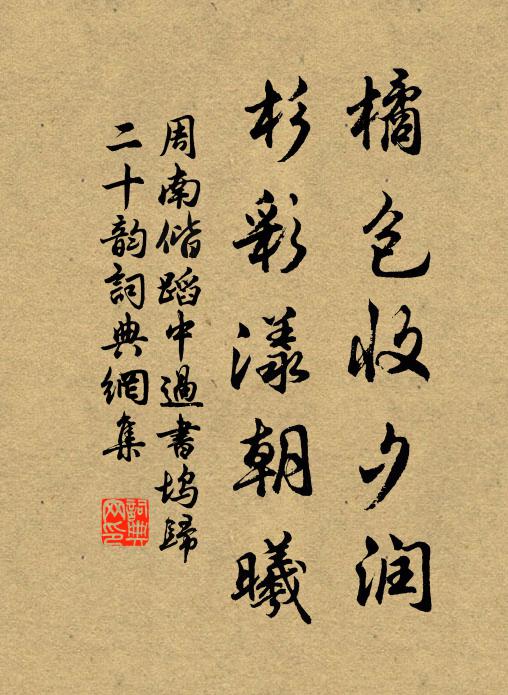 橘包收夕润
杉彩漾朝曦
周南偕蹈中過書坞歸
二十韵詞典網集
詞典網印